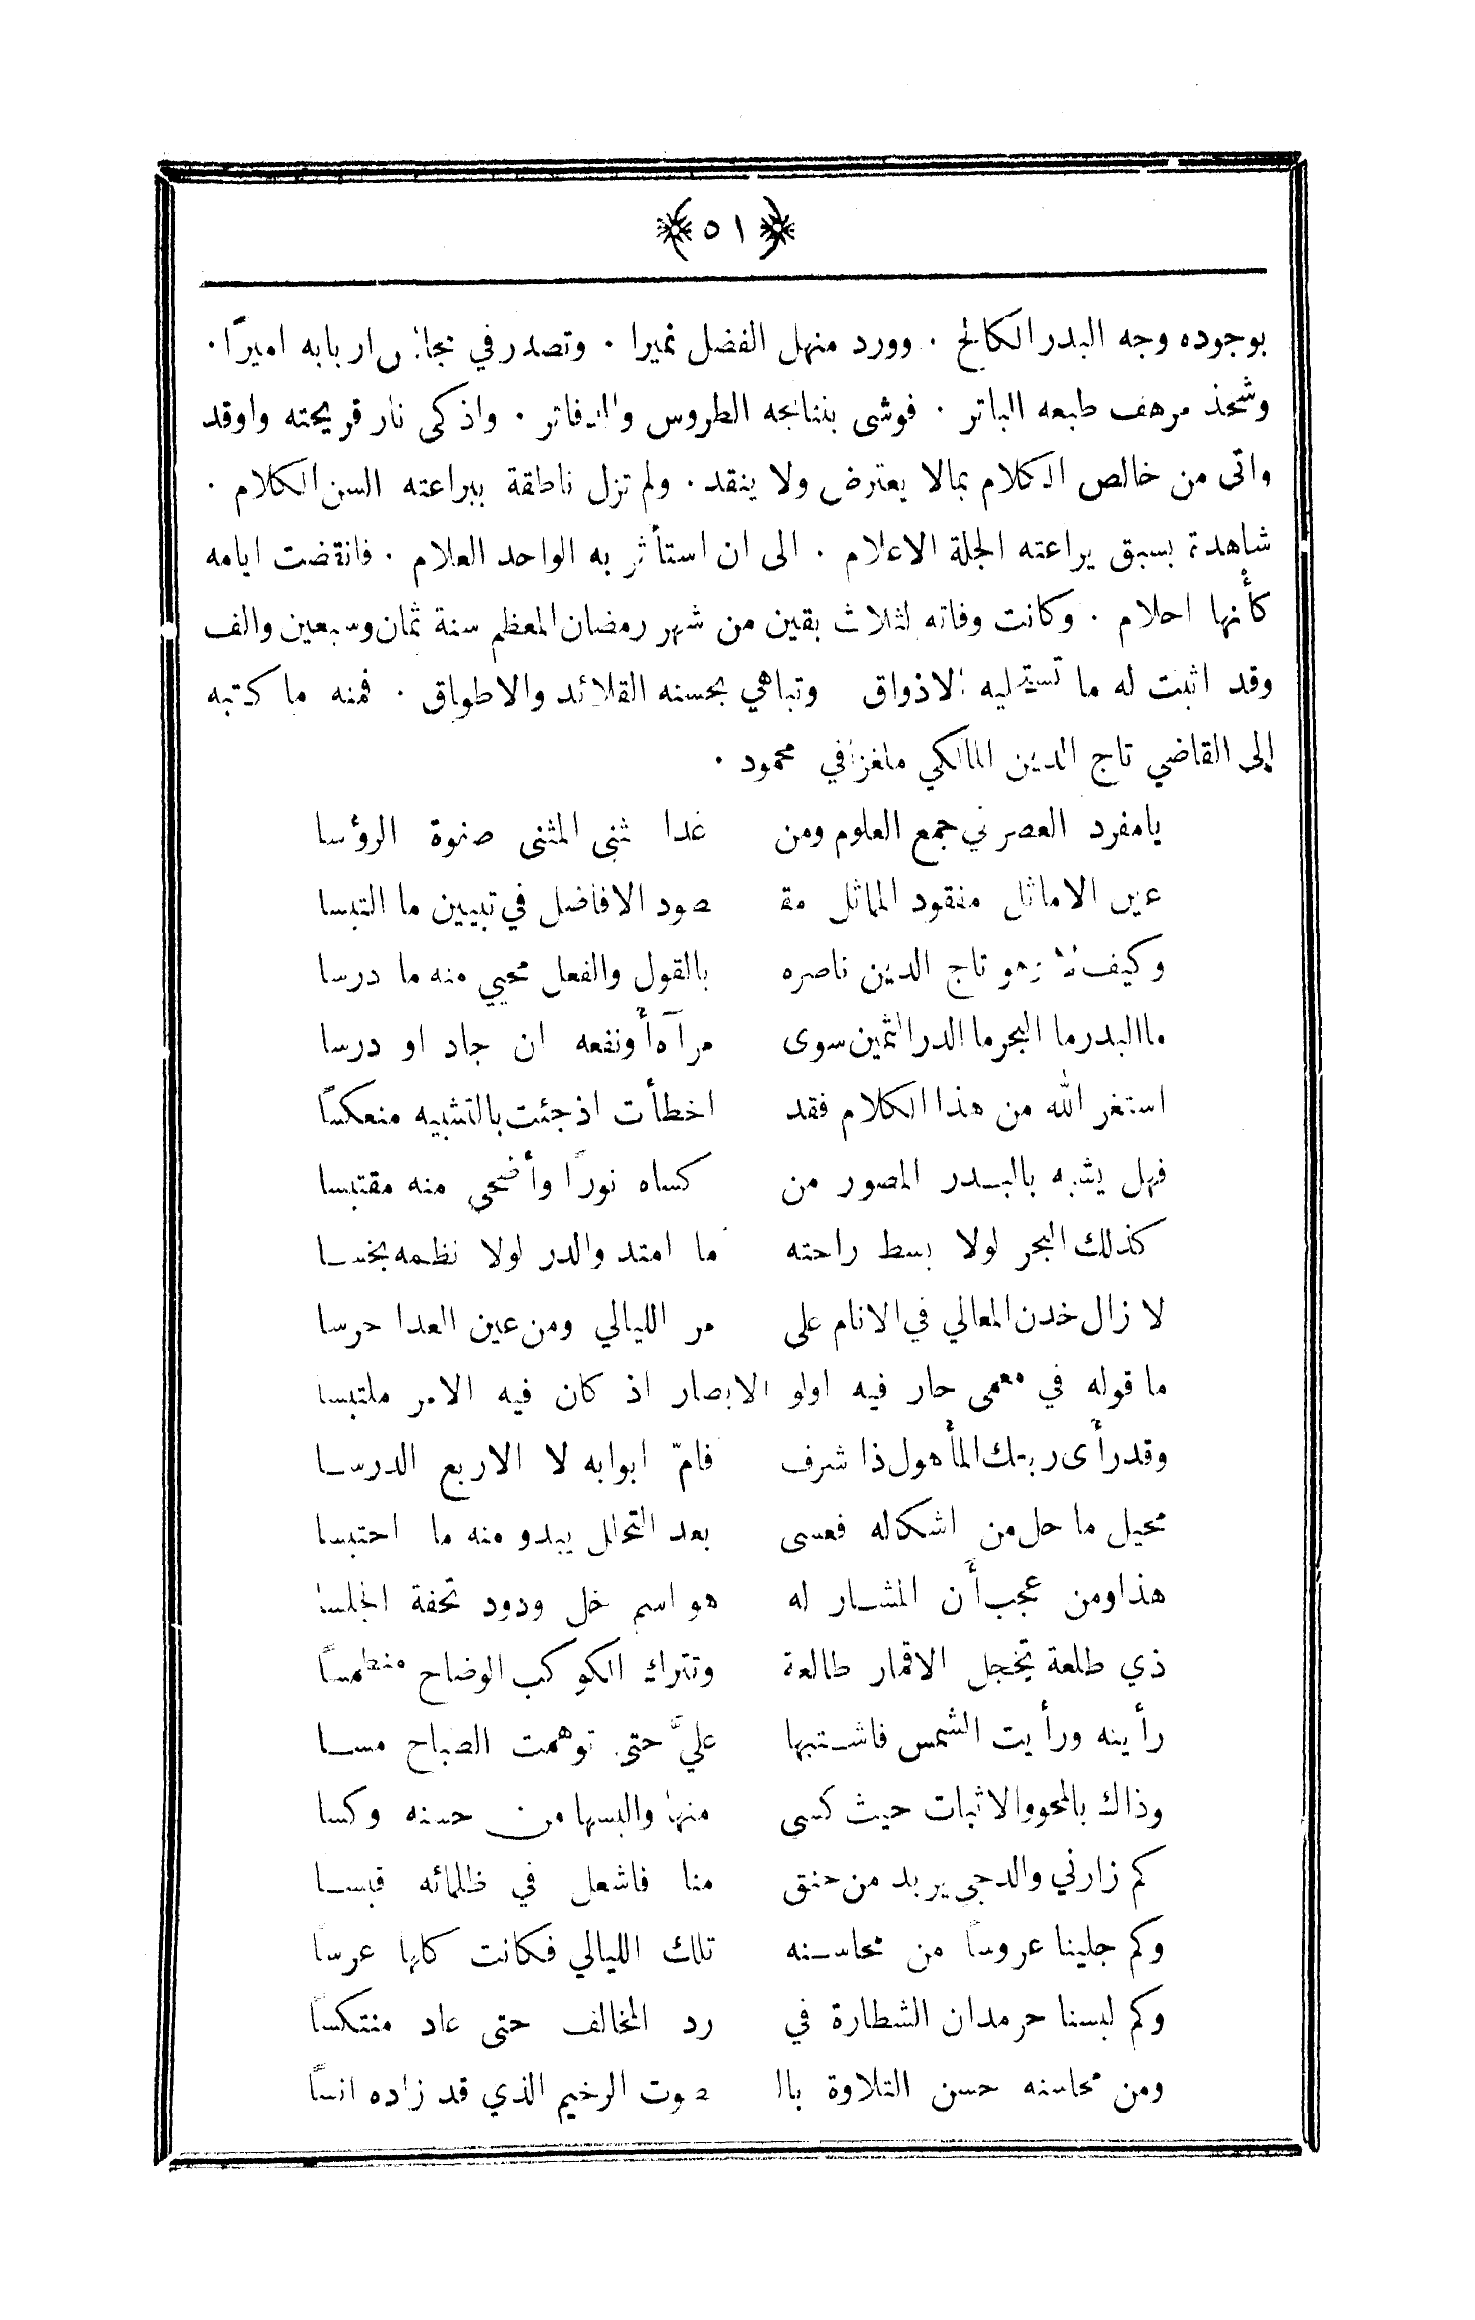 ﴿٥١﴾
بوجوده وجه البدر الكالح ٠ وورد منهل الفضل نميرا ٠ وتصدر في مجالس اربابه اميرًا ٠
وشحذ مرهف طبعه الباتر ٠ فوشى بنتائجه الطروس والدفاتر ٠ واذكى نار قريحته واوقد
واتى من خالص الكلام بمالا يعترض ولا ينقد ٠ ولم تزل ناطقة ببراعته السن الكلام ٠
شاهدة بسبق يراعته الجلة الاعلام ٠ الى ان استأثر به الواحد العلام ٠ فانقضت ايامه
كأنها احلام ٠ وكانت وفاته لثلاث بقين من شهر رمضان المعظم سنة ثمان وسبعين والف
وقد اثبت له ما تستحليه الاذواق وتباهي بحسنه القلائد والاطواق ٠ فمنه ما كتبه
إلى القاضي تاج الدين المالكي ملغزا في محمود ٠
يامفرد العصر في جمع العلوم ومن غدا ثنى المثنى صفوة الرؤسا
عين الاماثل مفقود المماثل مقـ ـصود الافاضل في تبيين ما التبسا
وكيف لا وهو تاج الدين ناصره بالقول والفعل محيي منه ما درسا
ما البدر ما البحر ما الدر الثمين سوى مرآه أو نفعه ان جاد او درسا
استغر الله من هذا الكلام فقد اخطأت اذ جئت بالتشبيه منعكسًا
فهل يشبه بالبـدر المصور من كساه نورًا وأضحى منه مقتبسا
كذلك البحر لولا بسط راحته ما امتد والدر لولا نظمه بخسا
لا زال خدن المعالي في الانام على مر الليالي ومن عين العدا حرسا
ما قوله في معمى حار فيه اولو الابصار اذ كان فيه الامر ملتبسا
وقد رأى ربعك المأهول ذا شرف فامّ ابوابه لا الاربع الدرسـا
محيل ما حل من اشكاله فعسى بعد التحلل يبدو منه ما احتبسا
هذا ومن عجب أن المشـار له هو اسم خل ودود تحفة الجلسا
ذي طلعة تخجل الاقمار طالعة وتترك الكوكب الوضاح منطمسًا
رأيته ورأيت الشمس فاشـتبها عليَّ حتى توهمت الصباح مسـا
وذاك بالمحو والاثبات حيث كسى منها والبسها من حسنه وكسا
كم زارني والدجى يربد من حنق منا فاشعل في ظلمائه قبسـا
وكم جلينا عروسًا من محاسـنه تلك الليالي فكانت كلها عرسا
وكم لبسنا حرمدان الشطارة في رد المخالف حتى عاد منتكسًا
ومن محاسنه حسن التلاوة بالـ ـصوت الرخيم الذي قد زاده انسًا